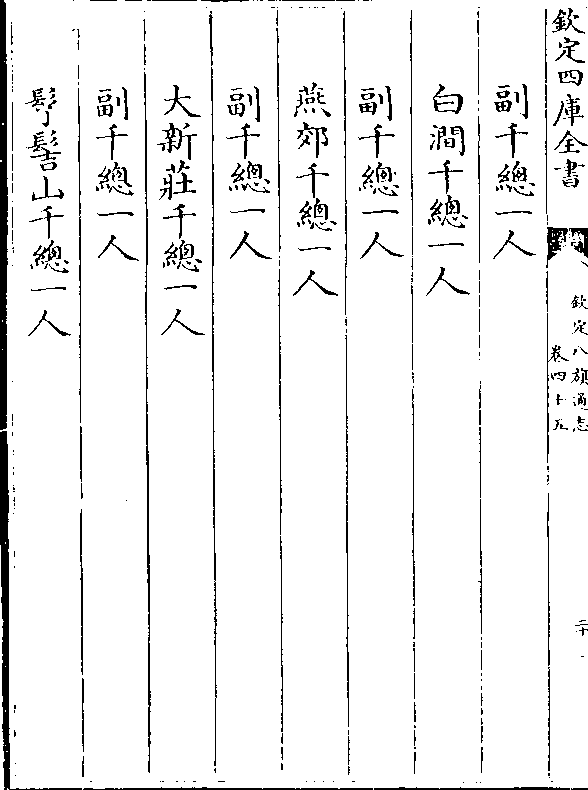 欽定四庫全書
欽定八旗通志
卷四十五
二十
副千總一人
白澗千總一人
副千總一人
燕郊千總一人
副千總一人
大新莊千總一人
副千總一人
髽髻山千總一人